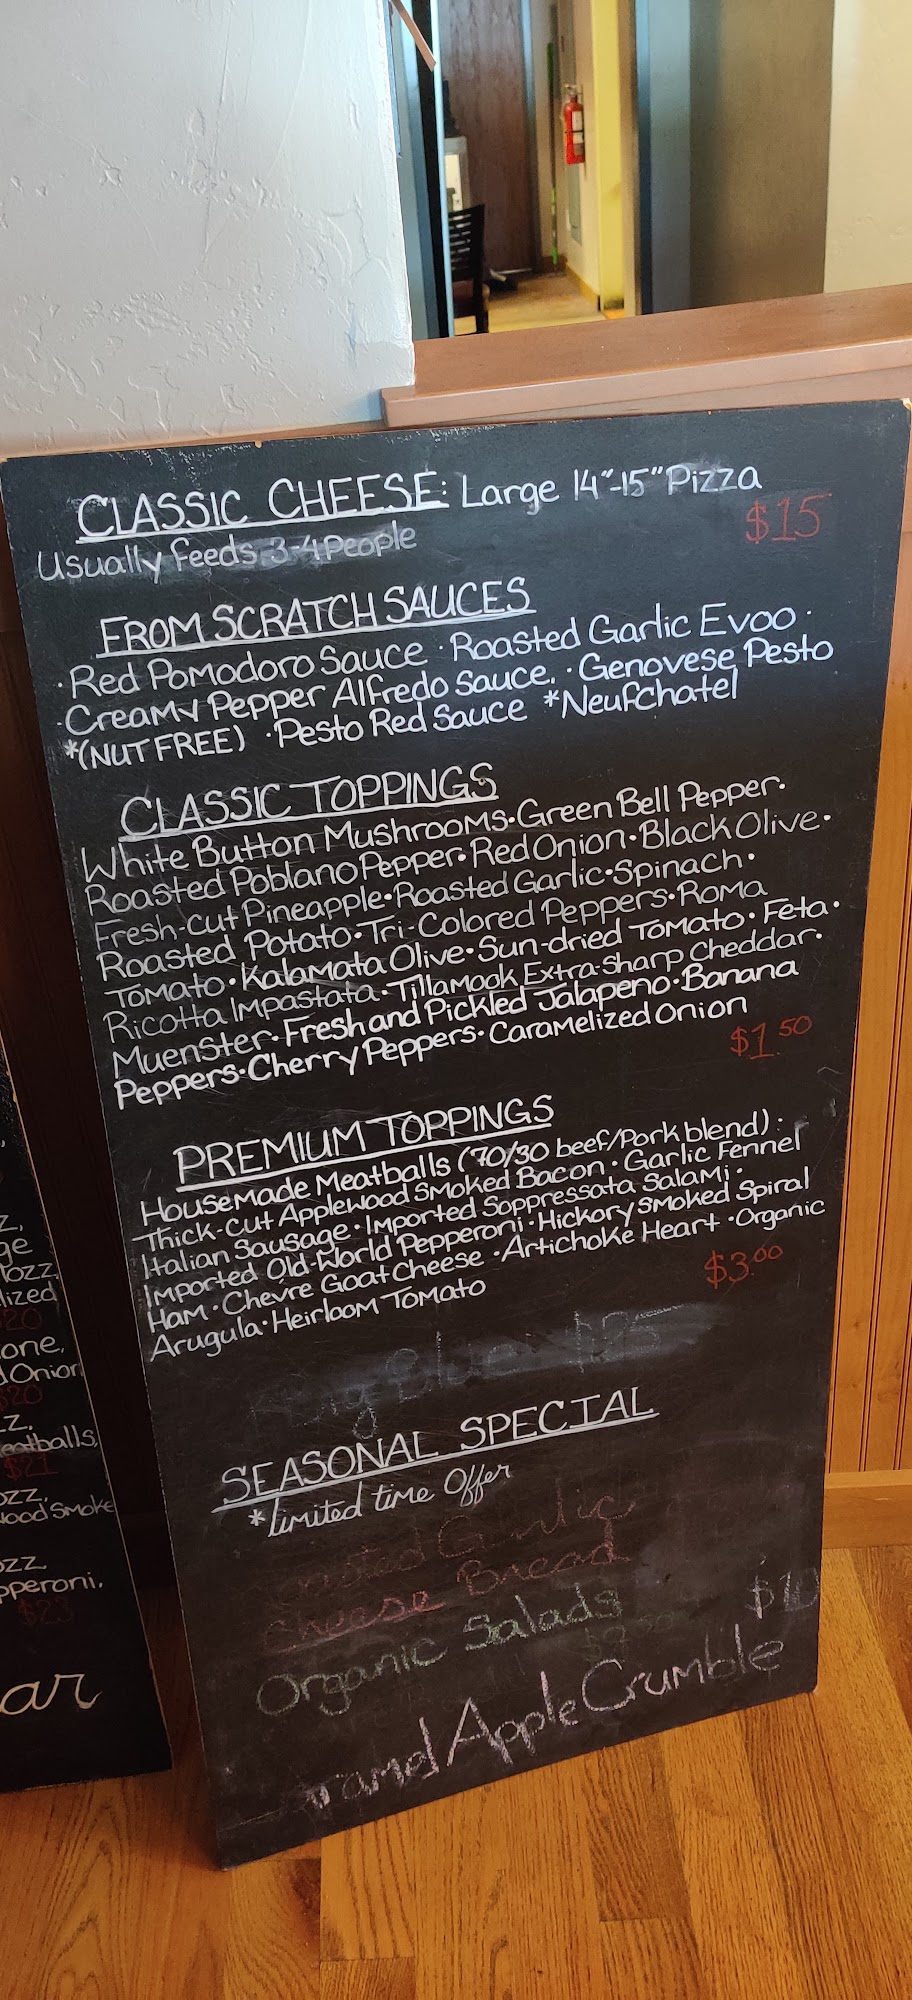 CLASSIC CHEESE: Large 14"-15" Pizza
$15
Usually feeds 3-4 People
FROM SCRATCH SAUCES
· Red Pomodoro Sauce · Roasted Garlic Evoo ·
· Creamy Pepper Alfredo Sauce. · Genovese Pesto
*(NUT FREE) · Pesto Red Sauce *Neufchatel
CLASSIC TOPPINGS
White Button Mushrooms · Green Bell Pepper ·
Roasted Poblano Pepper · Red Onion · Black Olive ·
Fresh-cut Pineapple · Roasted Garlic · Spinach ·
Roasted Potato · Tri-Colored Peppers · Roma
Tomato · Kalamata Olive · Sun-dried Tomato · Feta ·
Ricotta Impastata · Tillamook Extra-Sharp Cheddar ·
Muenster · Fresh and Pickled Jalapeno · Banana
Peppers · Cherry Peppers · Caramelized Onion
$1.50
PREMIUM TOPPINGS
Housemade Meatballs (70/30 beef/Pork blend) ·
Thick-cut Applewood Smoked Bacon · Garlic Fennel
Italian Sausage · Imported Soppressata Salami ·
Imported Old-World Pepperoni · Hickory Smoked Spiral
Ham · Chevre Goat Cheese · Artichoke Heart · Organic
Arugula · Heirloom Tomato
$3.00
$25
SEASONAL SPECIAL
*limited time Offer
Garlic
Cheese Bread
$10
Organic Salads
Apple Crumble
Z,
ge
ozz
lized
$20
one,
d Onion
$20
Z,
eatballs,
$21
ozz,
wood Smoke
ozz,
pperoni,
$23
ar